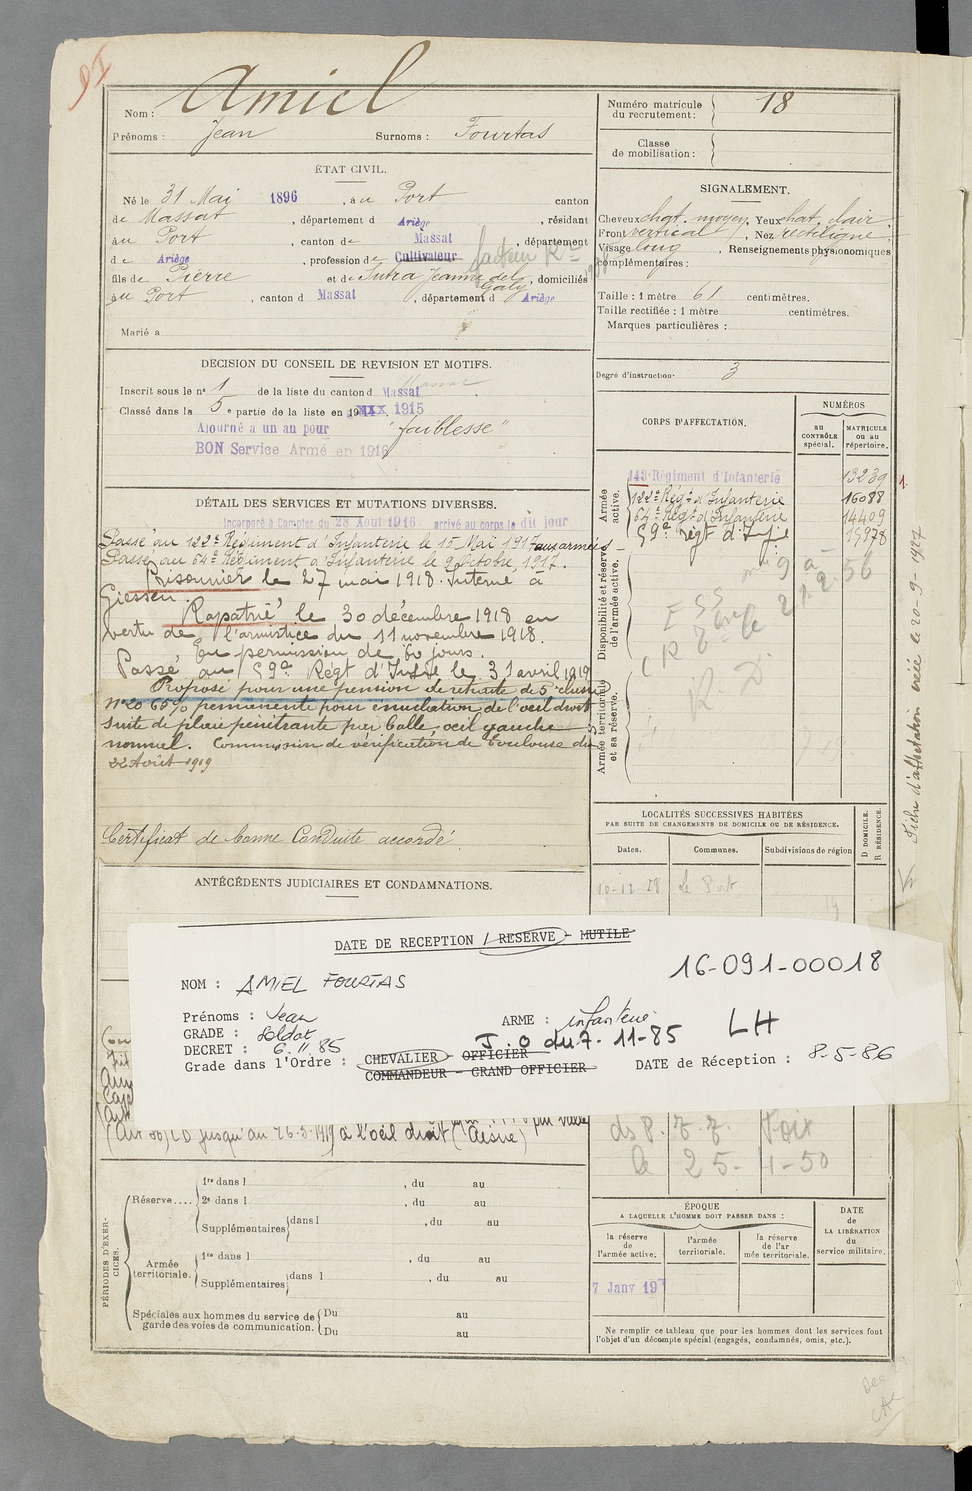 91
Nom : Amiel
Prénoms : Jean Surnoms : Fourtas
Numéro matricule du recrutement : 18
Classe de mobilisation :
ÉTAT CIVIL.
Né le 31 Mai 1896, à au Port canton
de Massat, département d Ariège, résidant
au Port, canton de Massat, département
d e Ariège, profession de Cultivateur facteur
fils de Pierre et de Sutra Jeanne del Galy, domiciliés
au Port, canton d Massat, département d Ariège
Marié a
SIGNALEMENT.
Cheveux chat. moyen, Yeux chat. clair
Front vertical, Nez rectiligne
Visage long, Renseignements physionomiques
complémentaires :
Taille : 1 mètre 61 centimètres.
Taille rectifiée : 1 mètre centimètres.
Marques particulières :
Degré d'instruction. 3
DECISION DU CONSEIL DE REVISION ET MOTIFS.
Inscrit sous le n° 1 de la liste du canton d Massat
Classé dans la 5 e partie de la liste en 1915
Ajourné a un an pour "faiblesse"
BON Service Armé en 1916
CORPS D'AFFECTATION.
NUMÉROS
AU CONTRÔLE spécial.
MATRICULE ou au répertoire.
Armée active.
143 Régiment d'Infanterie 13239
122e Régt d'Infanterie 16088
64e Régt d'Infanterie 14409
59e Régt d'Infie 15978
Disponibilité et réserve de l'armée active.
Armée territoriale et sa réserve.
DÉTAIL DES SERVICES ET MUTATIONS DIVERSES.
Incorporé à Compter du 28 Aout 1916 arrivé au corps le dit jour
Passé au 122e Régiment d'Infanterie le 15 Mai 1917 aux armées
Passé au 64e Régiment d'Infanterie le 9 Octobre 1917.
Prisonnier le 27 mai 1918. Interné à
Giessen.
Rapatrié le 30 décembre 1918 en
vertu de l'armistice du 11 novembre 1918.
En permission de 60 jours.
Passé au 59e Régt d'Infie le 31 avril 1919
Proposé pour une pension de retraite de 5e classe
N°20 65% permanente pour énucléation de l'oeil droit
suite de plaie pénétrante par balle, oeil gauche
normal. Commission de vérification de Toulouse du
22 Août 1919
Certificat de bonne Conduite accordé.
Fiche d'affectation créée le 20-9-1927
LOCALITÉS SUCCESSIVES HABITÉES
PAR SUITE DE CHANGEMENTS DE DOMICILE OU DE RÉSIDENCE.
Dates. Communes. Subdivisions de région
D DOMICILE.
R RÉSIDENCE.
16-12-28 Le Port
ANTÉCÉDENTS JUDICIAIRES ET CONDAMNATIONS.
DATE DE RECEPTION / RESERVE - MUTILE
16-091-00018
NOM : AMIEL FOURTAS
Prénoms : Jean ARME : infanterie
GRADE : soldat
DECRET : 6.11.85 J.O du 7-11-85 LH
Grade dans l'Ordre : CHEVALIER - OFFICIER
COMMANDEUR - GRAND OFFICIER
DATE de Réception : 8-5-86
jusqu'au 26-5-1919 à l'oeil droit (Aisne)
le 25-4-50
PÉRIODES D'EXERCICES.
Réserve.... 1re dans l , du au
2e dans l , du au
Supplémentaires dans l , du au
Armée territoriale. 1re dans l , du au
Supplémentaires dans l , du au
Spéciales aux hommes du service de garde des voies de communication. Du au
Du au
ÉPOQUE
A LAQUELLE L'HOMME DOIT PASSER DANS :
la réserve de l'armée active.
l'armée territoriale.
la réserve de l'ar mée territoriale.
DATE de LA LIBÉRATION du service militaire.
7 Janv 19
Ne remplir ce tableau que pour les hommes dont les services font
l'objet d'un décompte spécial (engagés, condamnés, omis, etc.).